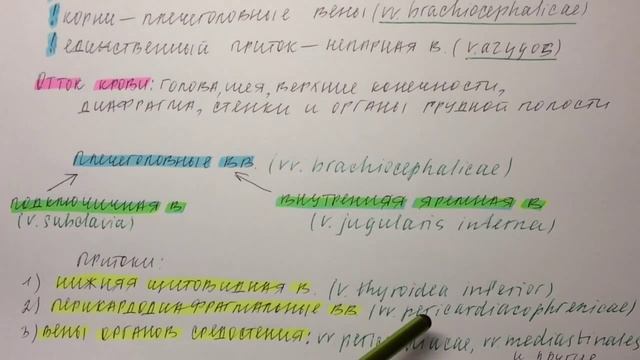 ! корни – плечеголовные вены (vv. brachiocephalicae)
! единственный приток – непарная в. (v. azygos)
Отток крови: голова, шея, верхние конечности,
диафрагма, стенки и органы грудной полости
плечеголовные вв. (vv. brachiocephalicae)
подключичная в внутренняя яремная в
(v. subclavia) (v. jugularis interna)
Притоки:
1) нижняя щитовидная в. (v. thyroidea inferior)
2) перикардодиафрагмальные вв (vv. pericardiacophrenicae)
3) вены органов средостения: vv mediastinales
и другие